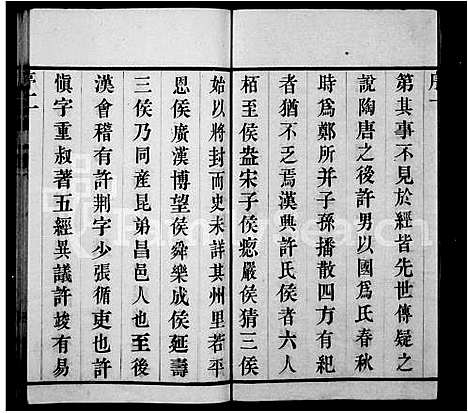 序一
第其事不見於經皆先世傳疑之
說陶唐之後許男以國爲氏春秋
時爲鄭所并子孫播散四方有顯
者猶不乏焉漢興許氏侯者六人
栢至侯盎宋子侯瘛嚴侯猜三侯
始以將封而史未詳其州里若平
恩侯廣漢博望侯舜樂成侯延壽
三侯乃同産昆弟昌邑人也至後
漢會稽有許荆字少張循吏也許
愼字重叔著五經異議許峻有易
序二